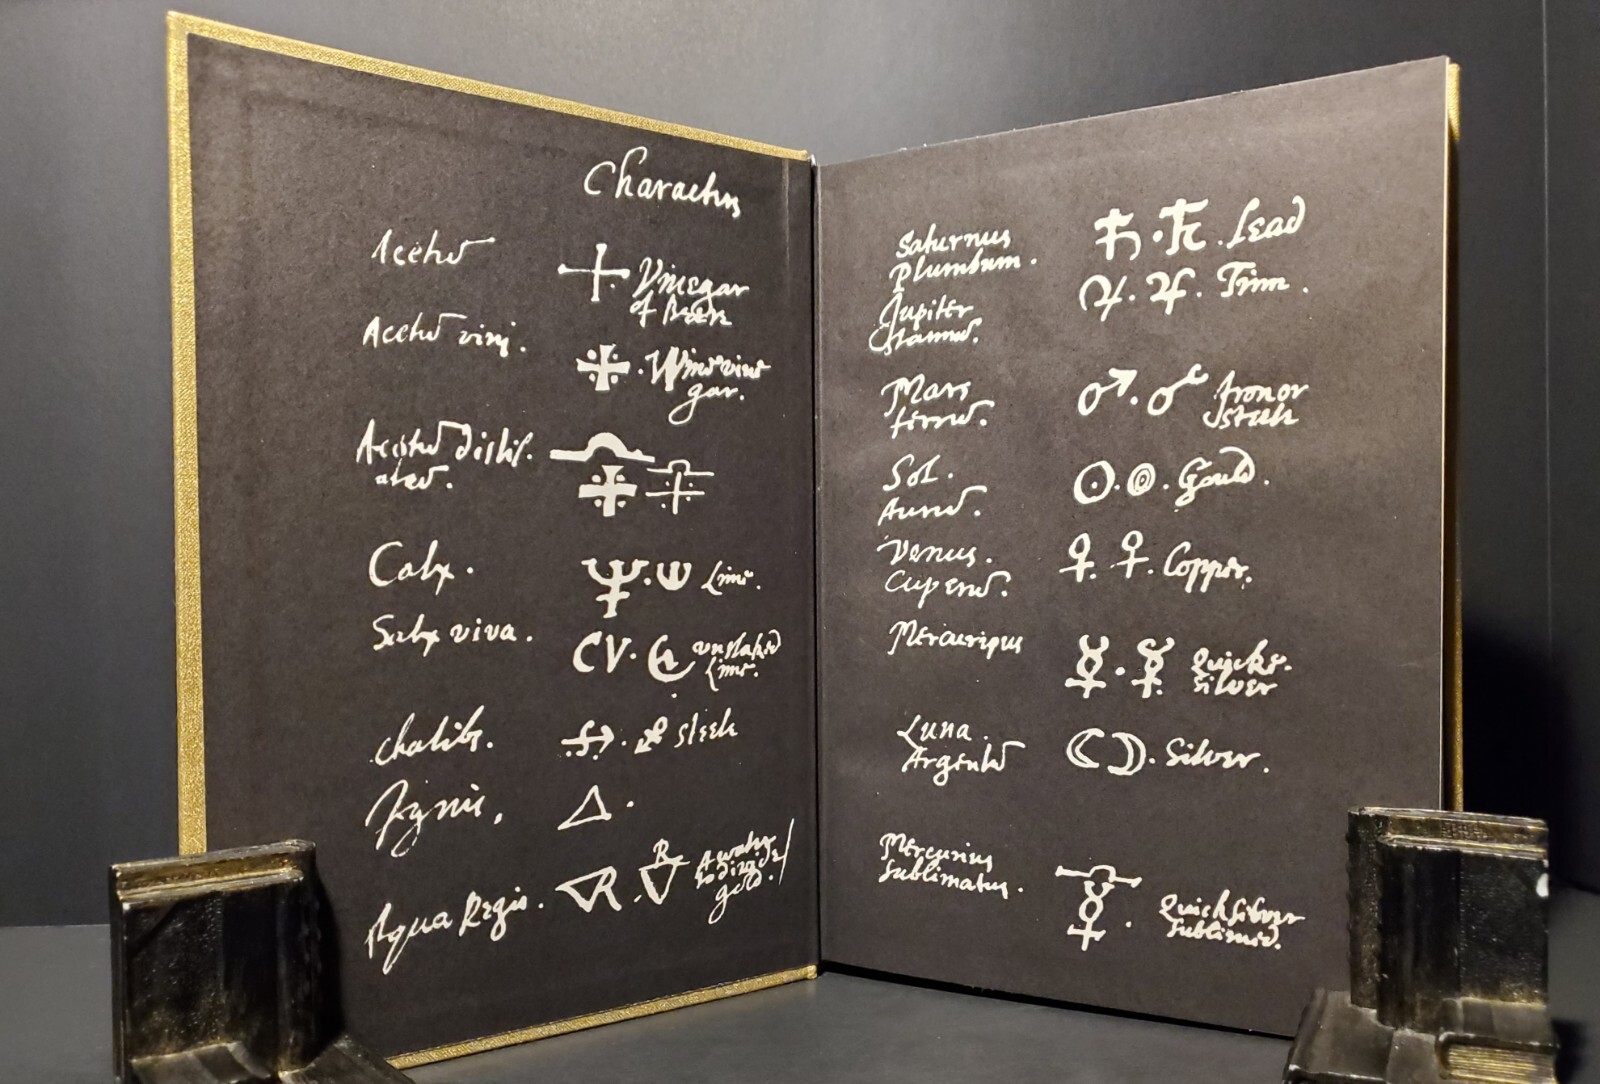 Characters
Acetū
Vinegar
of Beere
Acetū vini.
Wine vine
gar.
Acetū distil.
atū.
Calx.
Lime.
Calx viva.
CV.
unslaked
Lime.
Chalibs.
steele
Ignis.
Aqua Regis.
R
R
A water
to divide
gold.
Saturnus
Plumbum.
♄ . ♄ . Lead
Jupiter
Stannū.
♃ . ♃ . Tinn.
Mars
ferrū.
♂ . ♂
Iron or
steele
Sol.
Aurū.
☉ . ◎ . Gould.
Venus.
Cuperū.
♀ . ♀ . Copper.
Mercurius
☿ . ☿
Quicke.
silver
Luna.
Argentū
☾ ☽ . Silver.
Mercurius
Sublimatus.
☿ .
Quicksilver
sublimed.